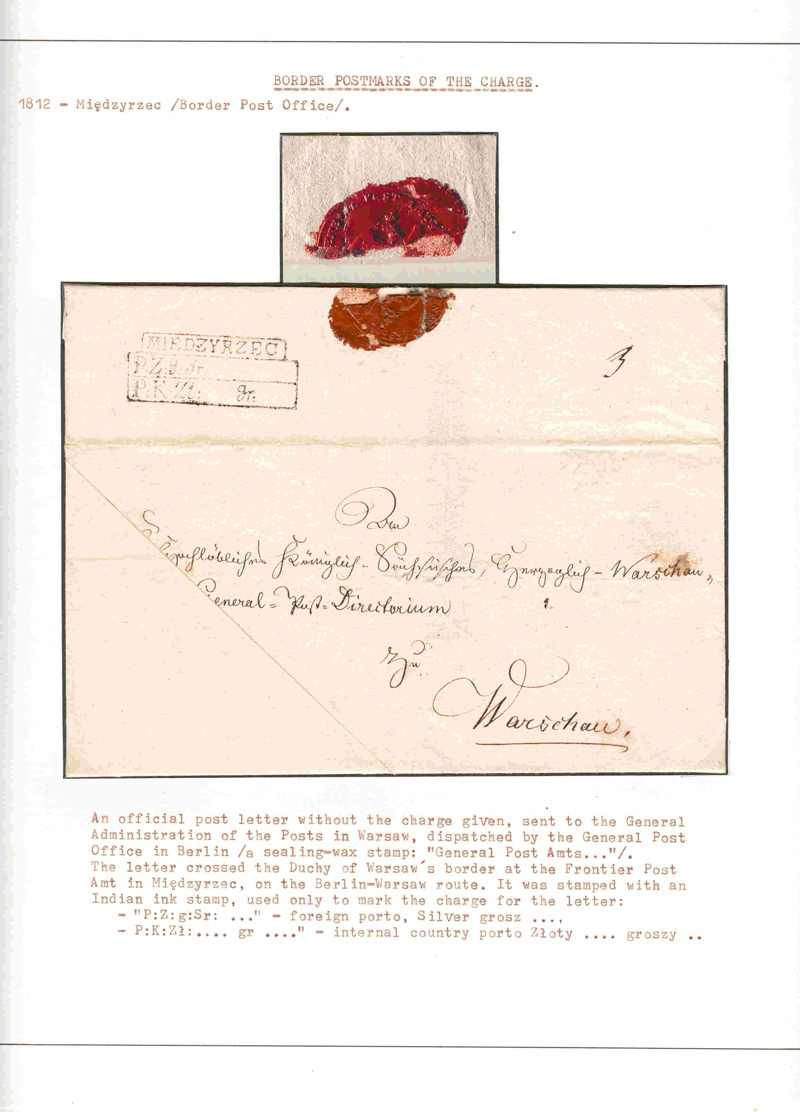 BORDER POSTMARKS OF THE CHARGE.
1812 - Międzyrzec /Border Post Office/.
MIEDZYRZEC
P.Z. g. Sr.
P.K. Zł: gr.
3
Dem
Hochlöbliches Königlich-Sächsisches, Herzoglich-Warschau,
General-Post-Directorium
zu
Warschau.
An official post letter without the charge given, sent to the General
Administration of the Posts in Warsaw, dispatched by the General Post
Office in Berlin /a sealing-wax stamp: "General Post Amts..."/.
The letter crossed the Duchy of Warsaw´s border at the Frontier Post
Amt in Międzyrzec, on the Berlin-Warsaw route. It was stamped with an
Indian ink stamp, used only to mark the charge for the letter:
- "P:Z:g:Sr: ..." - foreign porto, Silver grosz ...,
- P:K:Zł:.... gr ...." - internal country porto Złoty .... groszy ..